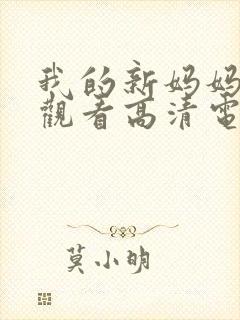 我的新妈妈
觀看高清電
莫小明